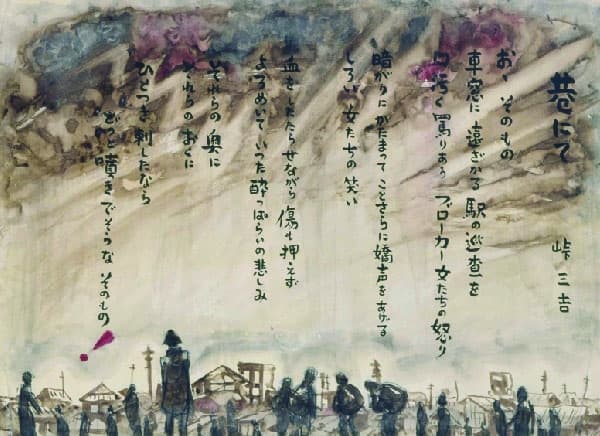 巷にて
峠三吉
おゝそのもの
車窓に遠ざかる駅の巡査を
口汚く罵りあうブローカー女たちの怒り
暗がりにかたまってことさらに嬌声をあげる
しろい女たちの笑い
血をしたたらせながら傷も押えず
よろめいていつた酔っぱらいの悲しみ
それらの奥に
それらのおくに
ひとつき刺したなら
どつと噴きでそうなそのもの!